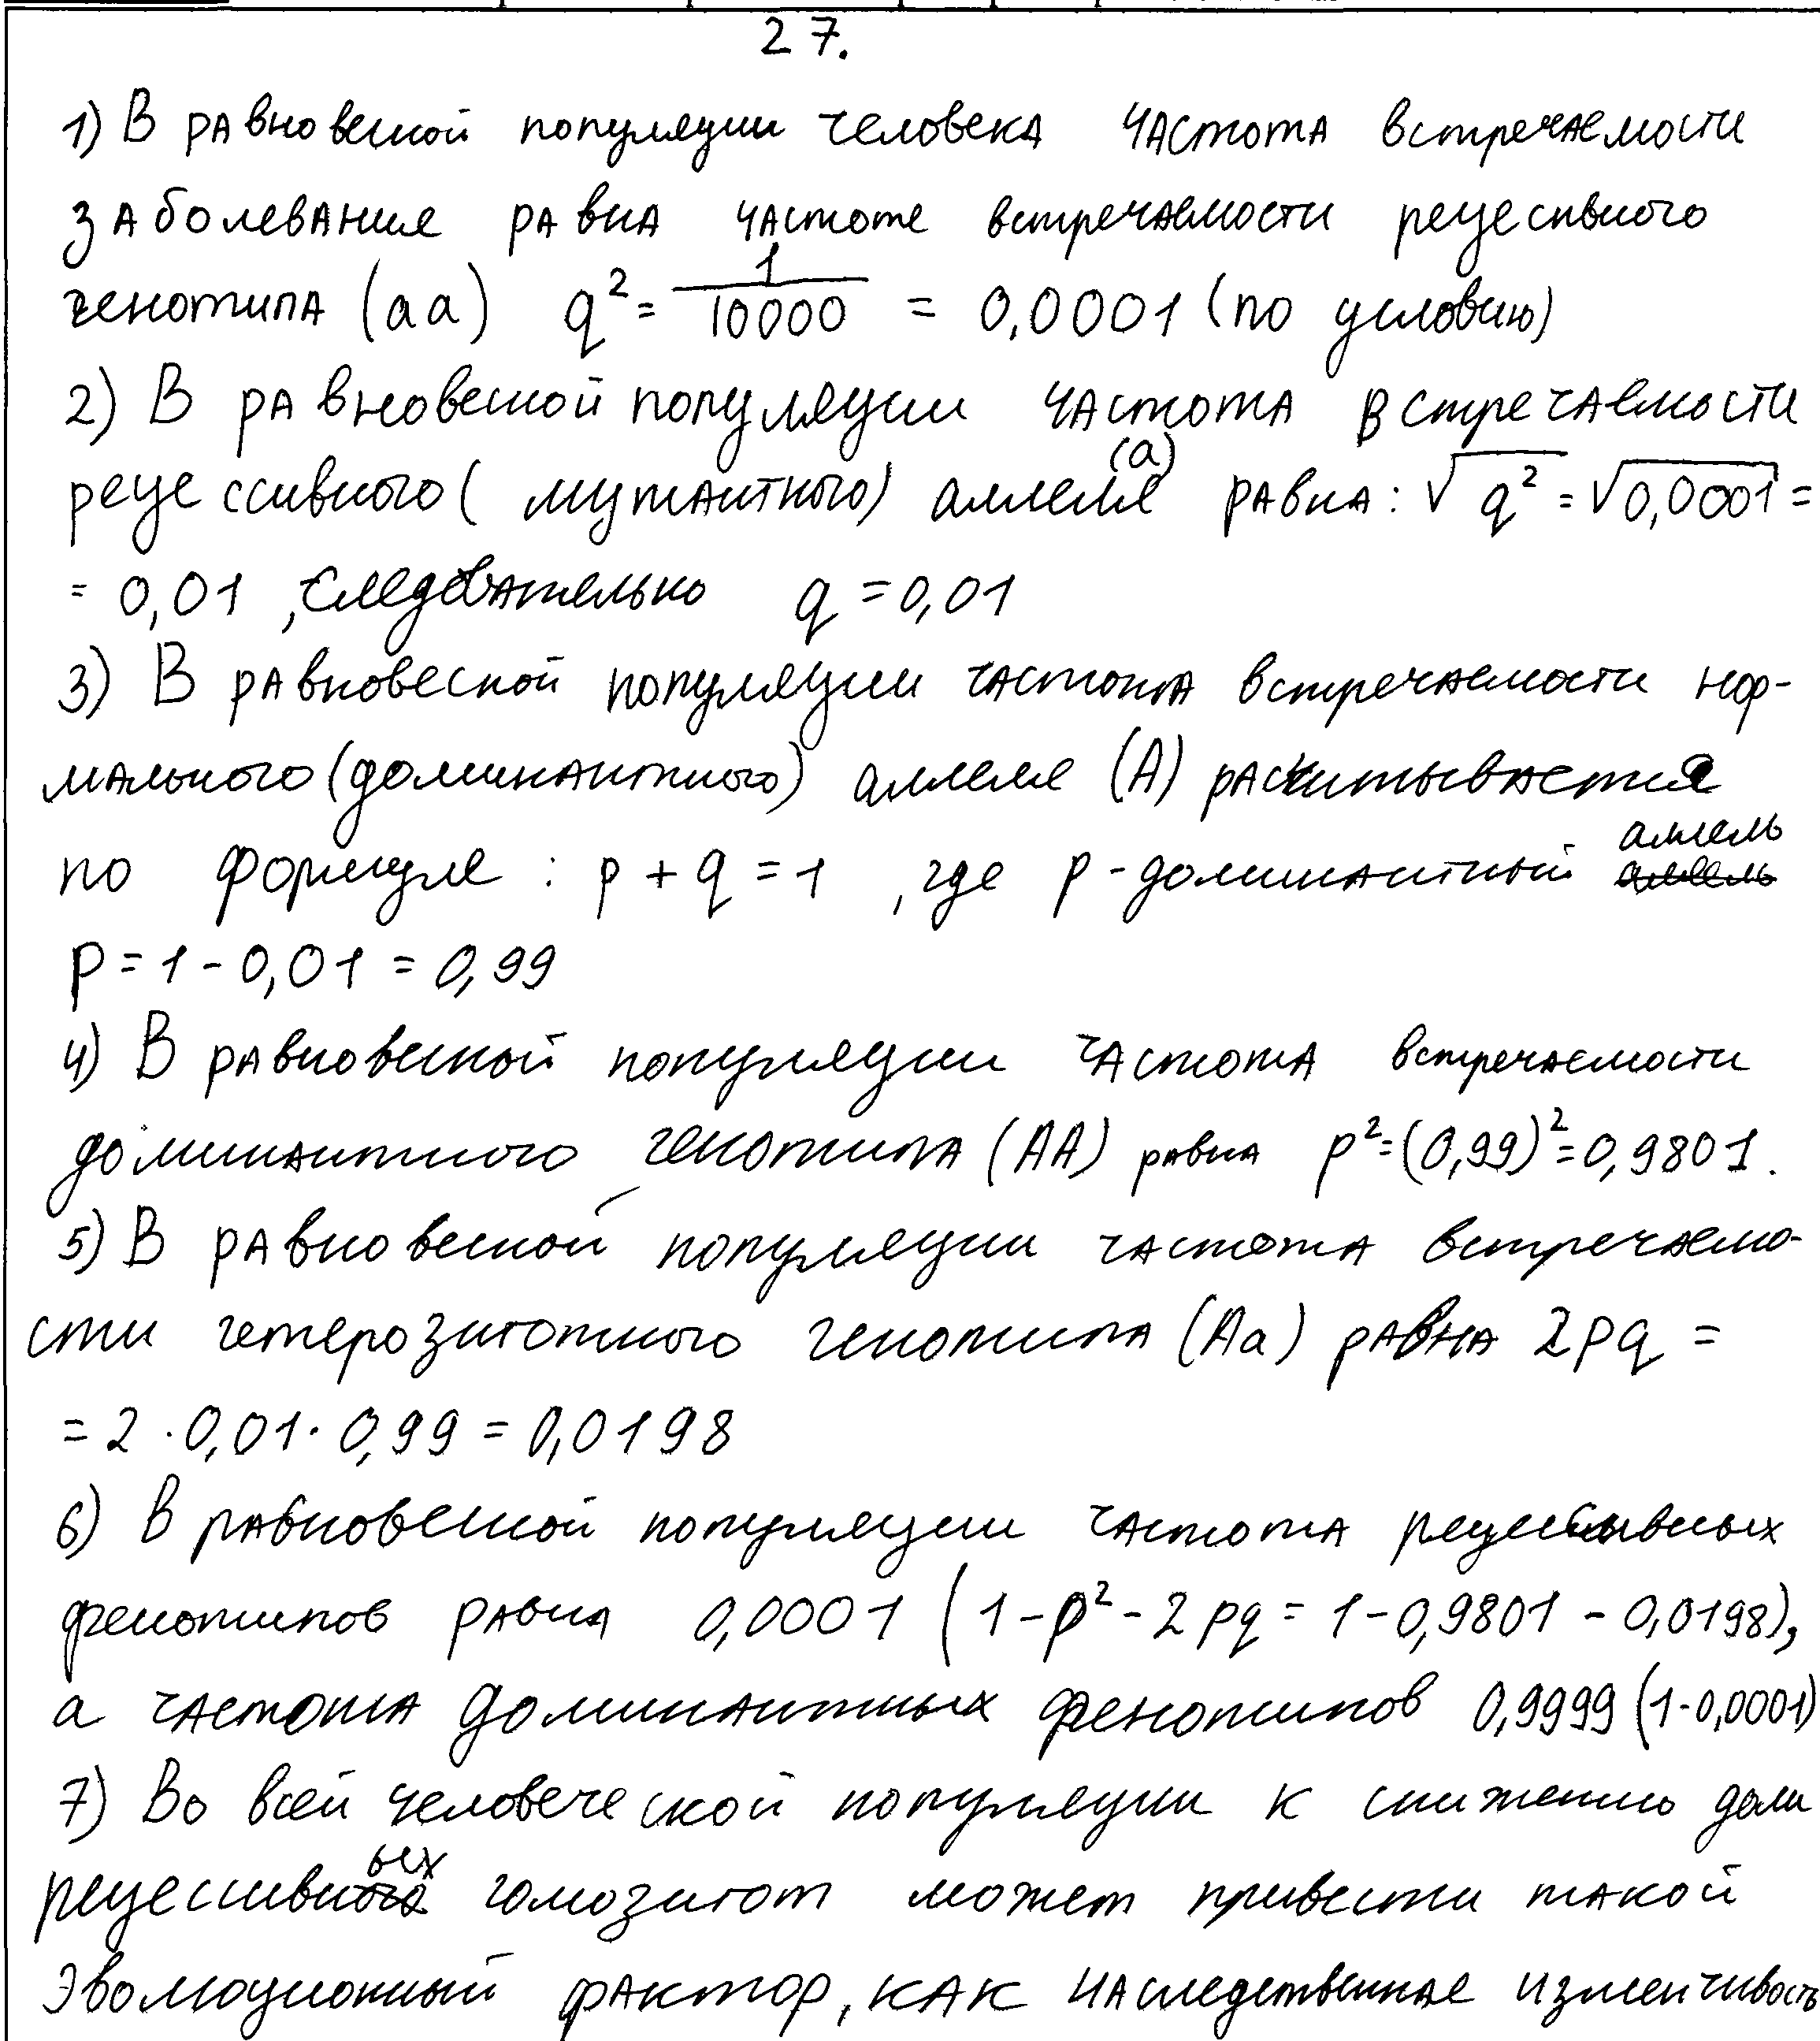 27.
1) В равновесной популяции человека частота встречаемости
заболевания равна частоте встречаемости рецесивного
генотипа (аа) q² = 1/10000 = 0,0001 (по условию)
2) В равновесной популяции частота встречаемости
рецессивного (мутантного) аллеля (а) равна: √q² = √0,0001 =
= 0,01, следовательно q = 0,01
3) В равновесной популяции частота встречаемости нор-
мального (доминантного) аллеля (А) расчитывается
по формуле: p + q = 1, где p - доминантный аллель
p = 1 - 0,01 = 0,99
4) В равновесной популяции частота встречаемости
доминантного генотипа (АА) равна p² = (0,99)² = 0,9801.
5) В равновесной популяции частота встречаемо-
сти гетерозиготного генотипа (Аа) равна 2pq =
= 2 · 0,01 · 0,99 = 0,0198
6) В равновесной популяции частота рецессивных
фенотипов равна 0,0001 (1 - p² - 2pq = 1 - 0,9801 - 0,0198),
а частота доминантных фенотипов 0,9999 (1 - 0,0001)
7) Во всей человеческой популяции к снижению доли
рецессивных гомозигот может привести такой
эволюционный фактор, как наследственная изменчивость